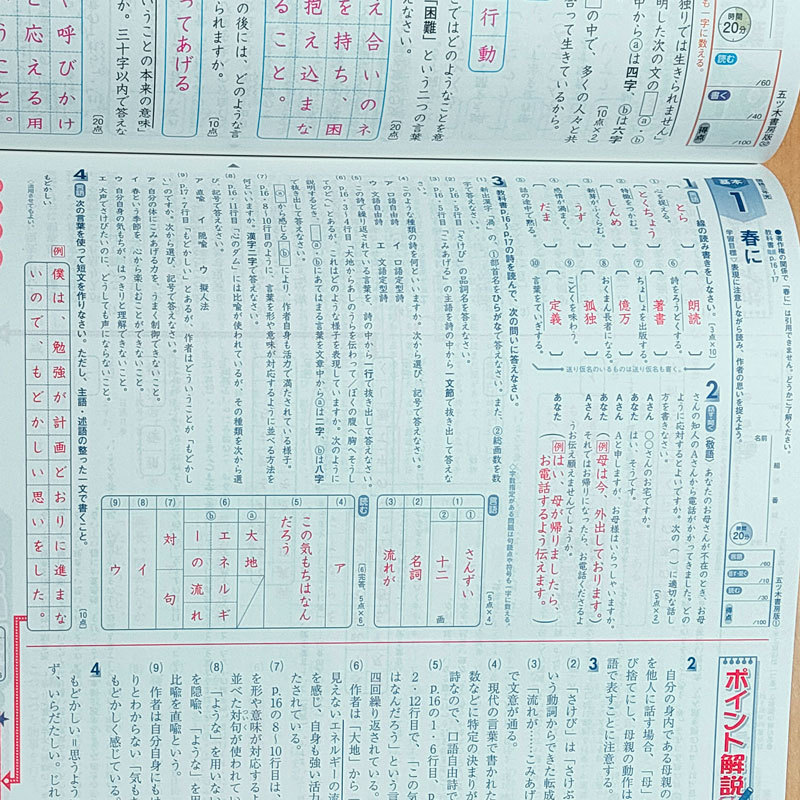 行動
「困難」という二つの言葉
独りでは生きられません」
の中で、多くの人々と共
合って生きているから。
[10点×2]
時間20分
読む /60
書く /40
得点 /100
え合いのネ
を持ち、困
抱え込まな
ること。
[20点]
の後には、どのような言
[10点]
ってあげる
いうことの本来の意味」
三十字以内で答えな
[20点]
呼びかけ
応える用
基本
1
春に
教科書p.16〜17
学習目標▽表現に注意しながら読み、作者の思いを捉えよう。
●著作権の関係で「春に」は引用できません。どうかご了解ください。
名前
組
番
時間20分
五ツ木書房版①
得点 /100
1 線の読み書きをしなさい。[3点×10]
① とら
心を捉える。
② とくちょう
③ しんめ
新芽がふくらむ。
④ うず
感情が渦まく。
⑤ だま
⑥ 朗読
詩をろうどくする。
⑦ 著書
ちょしょを出版する。
⑧ 億万
おくまん長者になる。
⑨ 孤独
こどくを味わう。
⑩ 定義
言葉をていぎする。
送り仮名のいるものは送り仮名も書く。
2 〈敬語〉 あなたのお母さんが不在のとき、お母
さんの知人のAさんから電話がかかってきました。どの
ように応対するとよいですか。次の( )に適切な話し
方を書きなさい。[5点×2]
Aさん 〇〇さんのお宅ですか。
あなた はい、そうです。
Aさん Aと申しますが、お母様はいらっしゃいますか。
あなた (例 母は今、外出しております。)
Aさん それではお帰りになったら、お電話くださるよ
うお伝え願えませんでしょうか。
あなた (例 はい、母が帰りましたら、
お電話するよう伝えます。)
3 教科書p.16〜p.17の詩を読んで、次の問いに答えなさい。
◇字数指定がある問題は句読点や符号も一字に数える。
(1) 新出漢字「渦」の、①部首名をひらがなで答えなさい。また、②総画数を数
字で答えなさい。
(2) p.16・5行目「さけび」の品詞名を答えなさい。
(3) p.16・6行目「こみあげる」の主語を詩の中から一文節で抜き出して答えな
さい。
(4) このような種類の詩を何といいますか。次から選び、記号で答えなさい。
ア 口語自由詩 イ 口語定型詩
ウ 文語自由詩 エ 文語定型詩
(5) この詩で繰り返されている言葉を、詩の中から一行で抜き出して答えなさい。
(6) p.16・3〜4行目「大地からあしのうらを伝わって/ぼくの腹へ胸へそうし
てのどへ」とあるが、これはどのような様子を表現していますか。次のように
説明するとき、ⓐ・ⓑにあてはまる言葉を文章中からⓐは二字、ⓑは八字
で抜き出して答えなさい。
ⓐから感じるⓑにより、作者自身も活力で満たされている様子。
(7) p.16・8〜10行目のように、言葉を形や意味が対応するように並べる方法を
何といいますか。漢字二字で答えなさい。
(8) p.16・11行目「このダム」には比喩が使われているが、その種類を次から選
び、記号で答えなさい。
ア 直喩 イ 隠喩 ウ 擬人法
(9) p.17・7行目「もどかしい」とあるが、作者はどういうことが「もどかし
い」のですか。次から選び、記号で答えなさい。
ア 自分の体にこみあげる力を、うまく制御できないこと。
イ 春という季節を、心から楽しむことができないこと。
ウ 自分自身の気もちが、はっきりと理解できないこと。
エ 大声でさけびたいのに、どうしても声にならないこと。
言語
[5点×4]
(1) ① さんずい
② 十二 画
(2) 名詞
(3) 流れが
読む
[⑥完答、5点×6]
(4) ア
(5) この気もちはなん
だろう
(6) ⓐ 大地
ⓑ エネルギ
ーの流れ
(7) 対句
(8) イ
(9) ウ
4 次の言葉を使って短文を作りなさい。ただし、主語・述語の整った一文で書くこと。[10点]
もどかしい
例 僕は、勉強が計画どおりに進まな
いので、もどかしい思いをした。
ポイント解説
2
自分の身内である母親の
を他人に話す場合、「母」
び捨てにし、母親の動作は
語で表すことに注意する。
3
(2) 「さけび」は「さけぶ
いう動詞からできた転成
(3) 「流れが……こみあげ
で文意が通る。
(4) 現代の言葉で書かれた
数などに特定の決まりが
詩なので、口語自由詩で
(5) p.16の1・6行目、p
2・12行目で、「この気
はなんだろう」という言
四回繰り返されている。
(6) 作者は「大地」から
見えないエネルギーの流
を感じ、自身も強い活力
たされている。
(7) p.16の8〜10行目は、
を形や意味が対応するよ
並べた対句が使われてい
(8) 「ような」を用いない
を隠喩、「ような」を用
比喩を直喩という。
(9) 作者は自分自身にもは
りとわからない「気もち
もどかしく感じている。
4
もどかしい＝思うよう
ず、いらだたしい。じれ